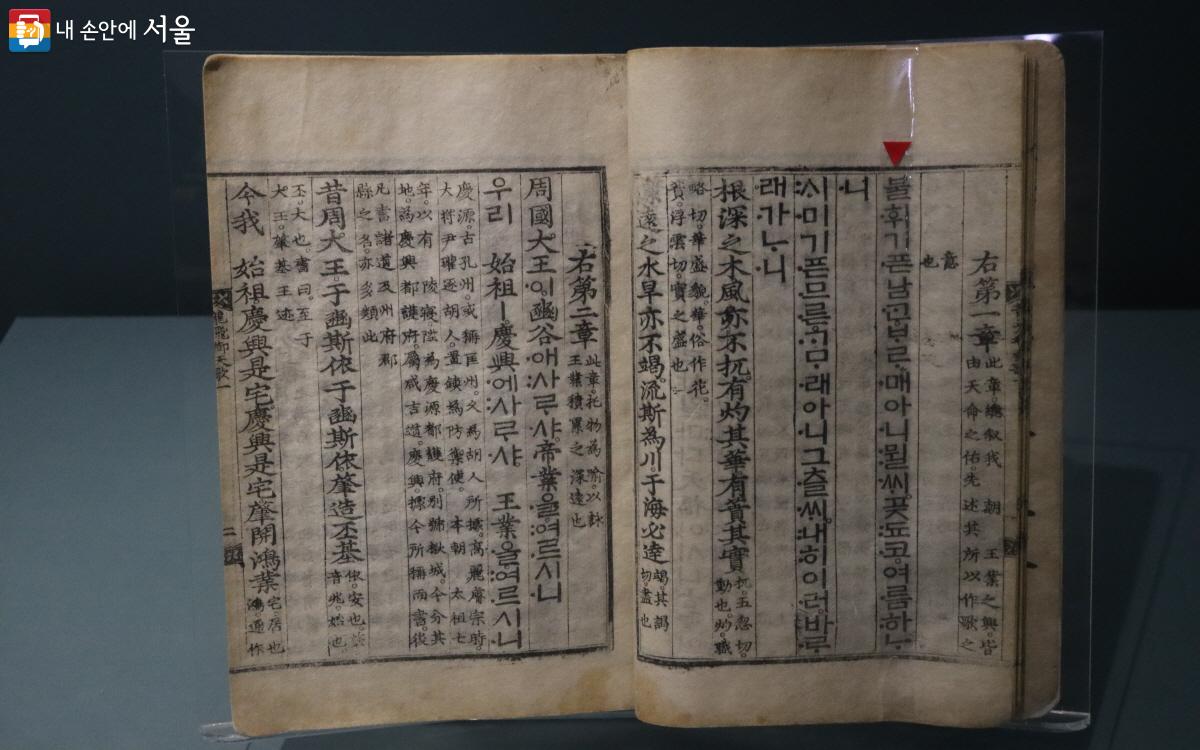 내 손안에 서울
右第一章
此章總叙我 朝 王業之興皆
由天命之佑先述其所以作歌之
意
也
불휘기픈남ᄀᆞᆫᄇᆞᄅᆞ매아니뮐ᄊᆡ곶됴코여름하ᄂᆞ
니
ᄉᆡ미기픈므른ᄀᆞᄆᆞ래아니그츨ᄊᆡ내히이러바ᄅᆞ
래가ᄂᆞ니
根深之木風亦不扤。有灼其華。有蕡其實
扤。五忽切。
動也。灼。職
略切。華盛貌。華。俗作花。
蕡。浮雲切。實之盛也
源遠之水旱亦不竭。流斯為川。于海必達
竭。其謁
切。盡也
右第二章
此章。托物為喻。以詠
王業積累之深遠也
周國大王이豳谷애사ᄅᆞ샤。帝業을여르시니
우리 始祖ㅣ慶興에사ᄅᆞ샤。 王業을여르시니
慶源。古孔州。或稱匡州。久為胡人所據。高麗睿宗時。
大將尹瓘逐胡人。置鎮為防禦使。本朝 太祖七
年。以有 陵寢。陞為慶源都護府。別號楸城。今分其
地。為慶興都護府。屬咸吉道。慶興。據今所稱而書。後
凡書諸道及州府郡
縣之名。亦多類此
昔周大王。于豳斯依。于豳斯依。肇造丕基
依。安也。肇
音兆。始也。
丕。大也。書曰。至于
大王。肇基王迹
今我 始祖。慶興是宅。慶興是宅。肇開鴻業
宅。居也
鴻。通作